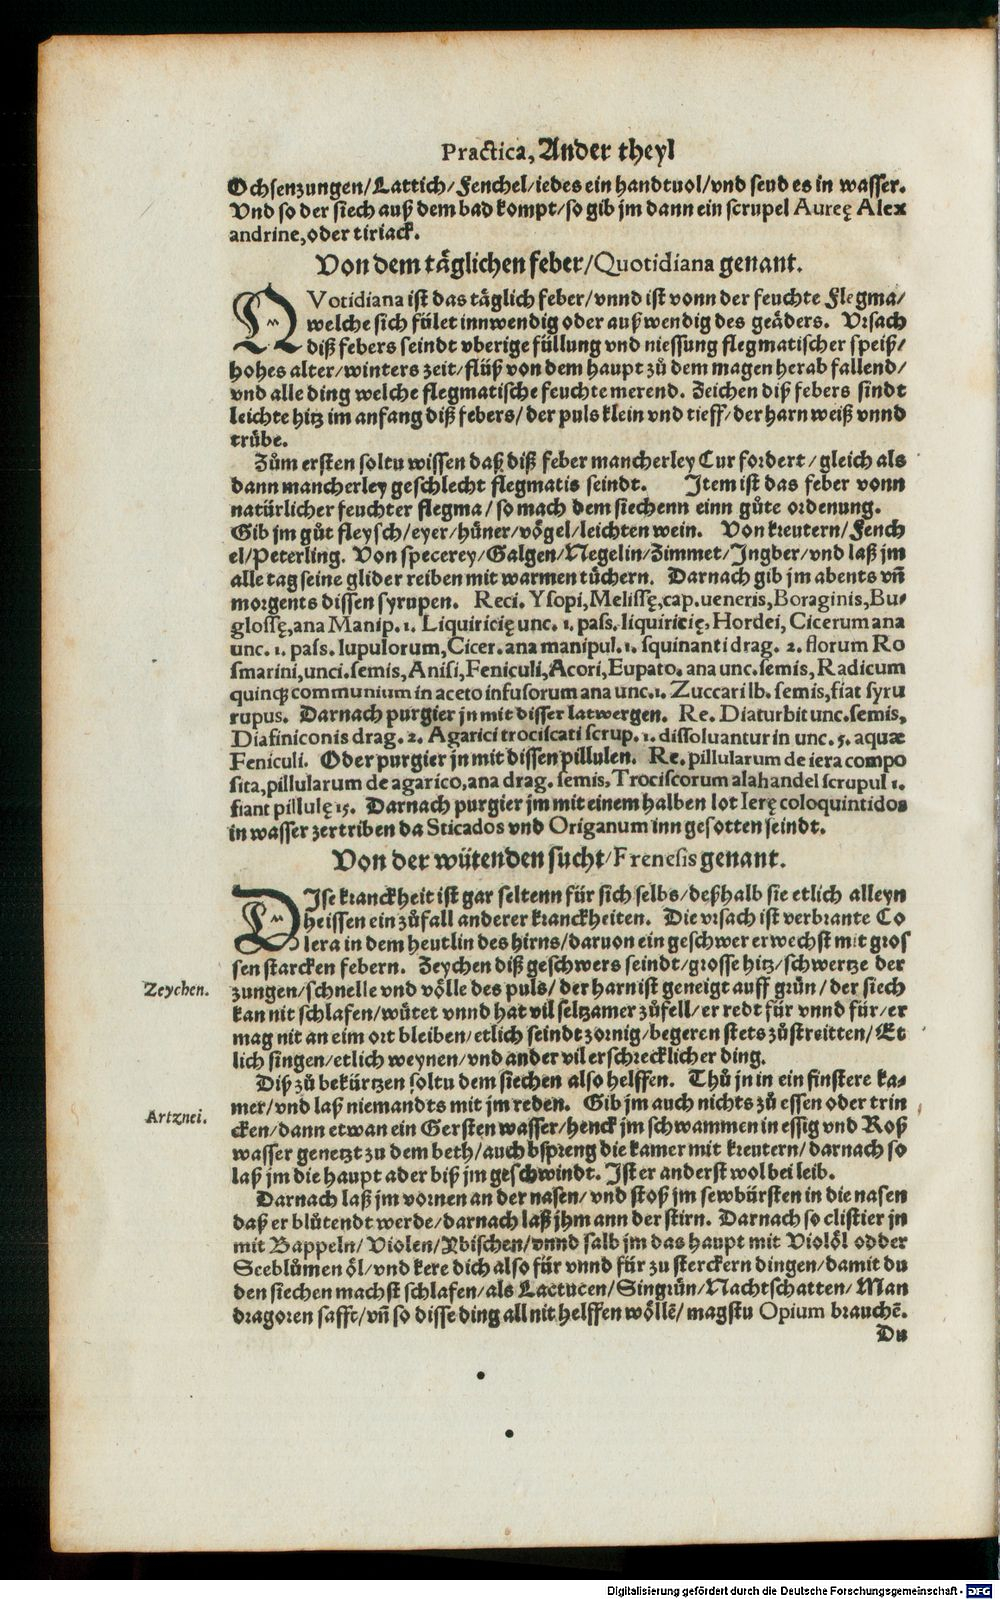 Practica, Ander theyl
Ochsenzungen/Lattich/Fenchel/iedes ein handtuol/vnd seud es in wasser.
Vnd so der siech auß dem bad kompt/so gib jm dann ein scrupel Aureę Alex
andrine, oder tiriack.
Von dem täglichen feber/Quotidiana genant.
QVotidiana ist das täglich feber/vnnd ist vonn der feuchte Flegma/
welche sich fület innwendig oder außwendig des geäders. Vrsach
diß febers seindt vberige füllung vnd niessung flegmatischer speiß/
hohes alter/winters zeit/flüß von dem haupt zů dem magen herab fallend/
vnd alle ding welche flegmatische feuchte merend. Zeichen diß febers sindt
leichte hitz im anfang diß febers/der puls klein vnd tieff/der harn weiß vnnd
trübe.
Zům ersten soltu wissen daß diß feber mancherley Cur fordert/gleich als
dann mancherley geschlecht flegmatis seindt. Item ist das feber vonn
natürlicher feuchter flegma/so mach dem siechenn einn gůte ordenung.
Gib jm gůt fleysch/eyer/hüner/vögel/leichten wein. Von kreutern/Fench
el/Peterling. Von specerey/Galgen/Negelin/Zimmet/Ingber/vnd laß jm
alle tag seine glider reiben mit warmen tüchern. Darnach gib jm abents vñ
morgents dissen syrupen. Reci. Ysopi, Melissę, cap. ueneris, Boraginis, Bu-
glossę, ana Manip. 1. Liquiricię unc. 1. pass. liquiricię, Hordei, Cicerum ana
unc. 1. pass. lupulorum, Cicer. ana manipul. 1. squinanti drag. 2. florum Ro
smarini, unci. semis, Anisi, Feniculi, Acori, Eupato. ana unc. semis, Radicum
quinqꝫ communium in aceto infusorum ana unc. 1. Zuccari lb. semis, fiat syru
rupus. Darnach purgier jn mit disser latwergen. Re. Diaturbit unc. semis,
Diafiniconis drag. 2. Agarici trociscati scrup. 1. dissoluantur in unc. 5. aquæ
Feniculi. Oder purgier jn mit dissen pillulen. Re. pillularum de iera compo
sita, pillularum de agarico, ana drag. semis, Trociscorum alahandel scrupul 1.
fiant pillulę 15. Darnach purgier jm mit einem halben lot Ierę coloquintidos
in wasser zertriben da Sticados vnd Origanum inn gesotten seindt.
Von der wütenden sucht/Frenesis genant.
DIse kranckheit ist gar seltenn für sich selbs/deßhalb sie etlich alleyn
heissen ein zůfall anderer kranckheiten. Die vrsach ist verbrante Co
lera in dem heutlin des hirns/daruon ein geschwer erwechst mit gros
sen starcken febern. Zeychen diß geschwers seindt/grosse hitz/schwertze der
Zeychen.
zungen/schnelle vnd völle des puls/der harn ist geneigt auff grün/der siech
kan nit schlafen/wütet vnnd hat vil seltzamer zůfell/er redt für vnnd für/er
mag nit an eim ort bleiben/etlich seindt zornig/begeren stets zůstreitten/Et
lich singen/etlich weynen/vnd ander vil erschrecklicher ding.
Diß zů bekürtzen soltu dem siechen also helffen. Thů jn in ein finstere ka-
mer/vnd laß niemandts mit jm reden. Gib jm auch nichts zů essen oder trin
Artznei.
cken/dann etwan ein Gersten wasser/henck jm schwammen in essig vnd Roß
wasser genetzt zu dem beth/auch bspreng die kamer mit kreutern/darnach so
laß jm die haupt ader biß jm geschwindt. Ist er anderst wol bei leib.
Darnach laß jm vornen an der nasen/vnd stoß jm sewbürsten in die nasen
daß er blůtendt werde/darnach laß jhm ann der stirn. Darnach so clistier jn
mit Bappeln/Violen/Ybischen/vnnd salb jm das haupt mit Violöl odder
Seeblůmen öl/vnd kere dich also für vnnd für zu sterckern dingen/damit du
den siechen machst schlafen/als Lactucen/Singrün/Nachtschatten/Man
dragoren safft/vñ so disse ding all nit helffen wöllē/magstu Opium brauchē.
Du
Digitalisierung gefördert durch die Deutsche Forschungsgemeinschaft - DFG